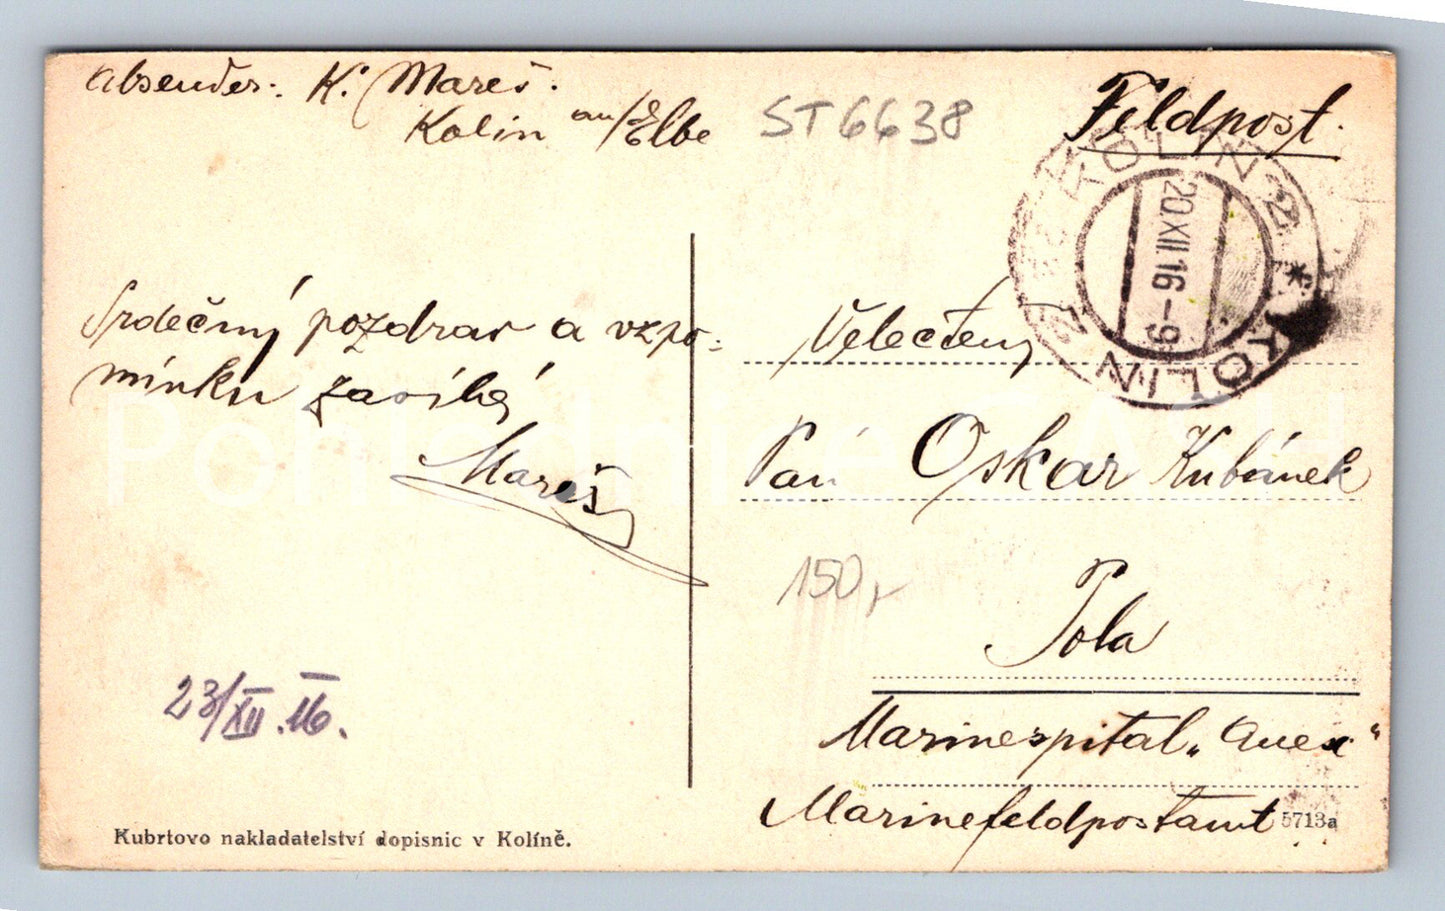 Absender: K. Mareš.
Kolin an/Elbe
ST6638
Feldpost.
KOLIN 2
20.XII.16-9
* KOLÍN 2
Srdečný pozdrav a vzpo-
mínku zasílá
Mareš
23/XII.16.
Velectěný
Pan Oskar Kubánek
150,-
Pola
Marinespital „Anex“
Marinefeldpostamt
5713a
Kubrtovo nakladatelství dopisnic v Kolíně.
Pohlednice CASH